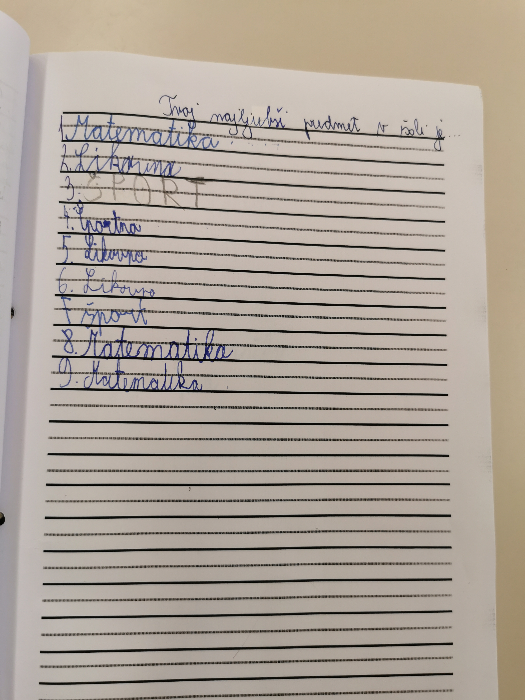 Tvoj najljubši predmet v šoli je...
1. Matematika.
2. Likovna
3. ŠPORT
4. Športna
5. Likovna
6. Likovna
7. šport
8. Matematika
9. Matematika